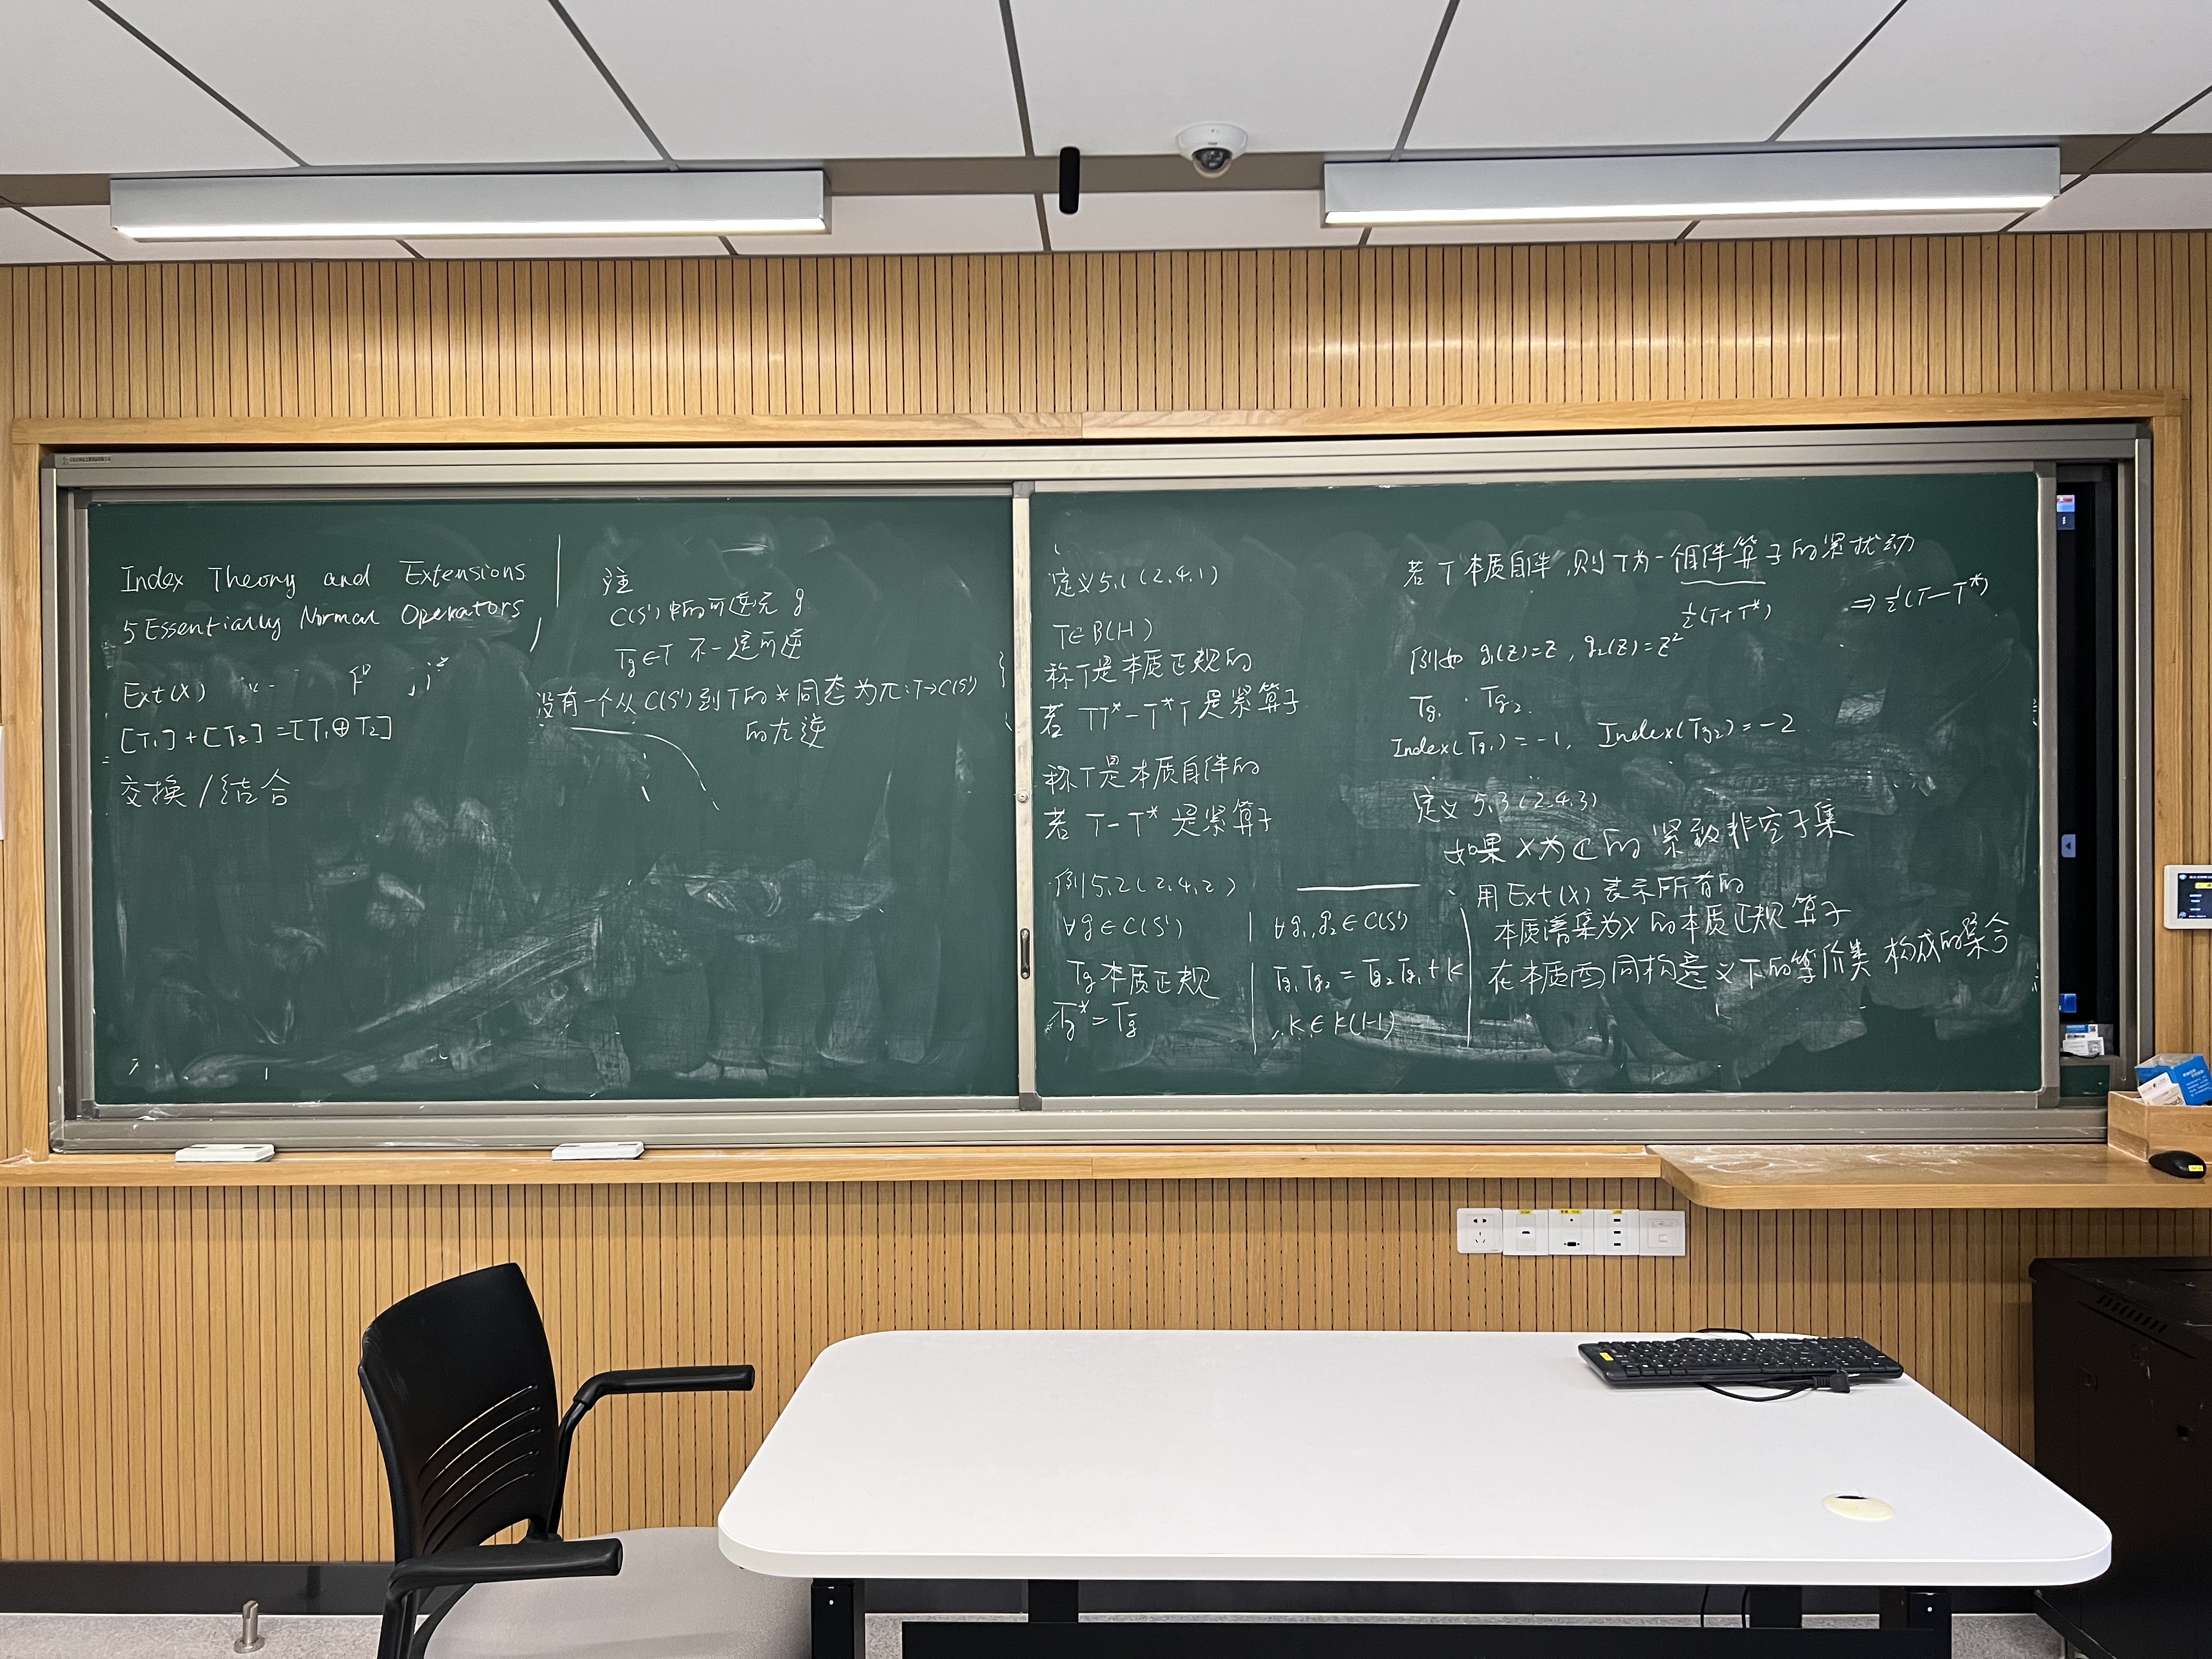 Index Theory and Extensions
5 Essentially Normal Operators
Ext(X)
[T₁]+[T₂]=[T₁⊕T₂]
交换/结合
注
C(S¹)中的可逆元 g
Tg∈T 不一定可逆
没有一个从C(S¹)到T的*同态为π:T→C(S¹)
的左逆
定义5.1(2.4.1)
T∈B(H)
称T是本质正规的
若 TT*-T*T 是紧算子
称T是本质自伴的
若 T-T* 是紧算子
例5.2(2.4.2)
∀g∈C(S¹)
Tg本质正规
Tg*=Tḡ
∀g₁,g₂∈C(S¹)
Tg₁Tg₂=Tg₂Tg₁+K
K∈K(H)
若T本质自伴,则T为一自伴算子的紧扰动
½(T+T*)
⇒½(T-T*)
例如 g₁(z)=z, g₂(z)=z²
Tg₁ Tg₂
Index(Tg₁)=-1, Index(Tg₂)=-2
定义5.3(2.4.3)
如果X为ℂ的紧致非空子集
用Ext(X)表示所有的
本质谱集为X的本质正规算子
在本质酉同构意义下的等价类构成的集合